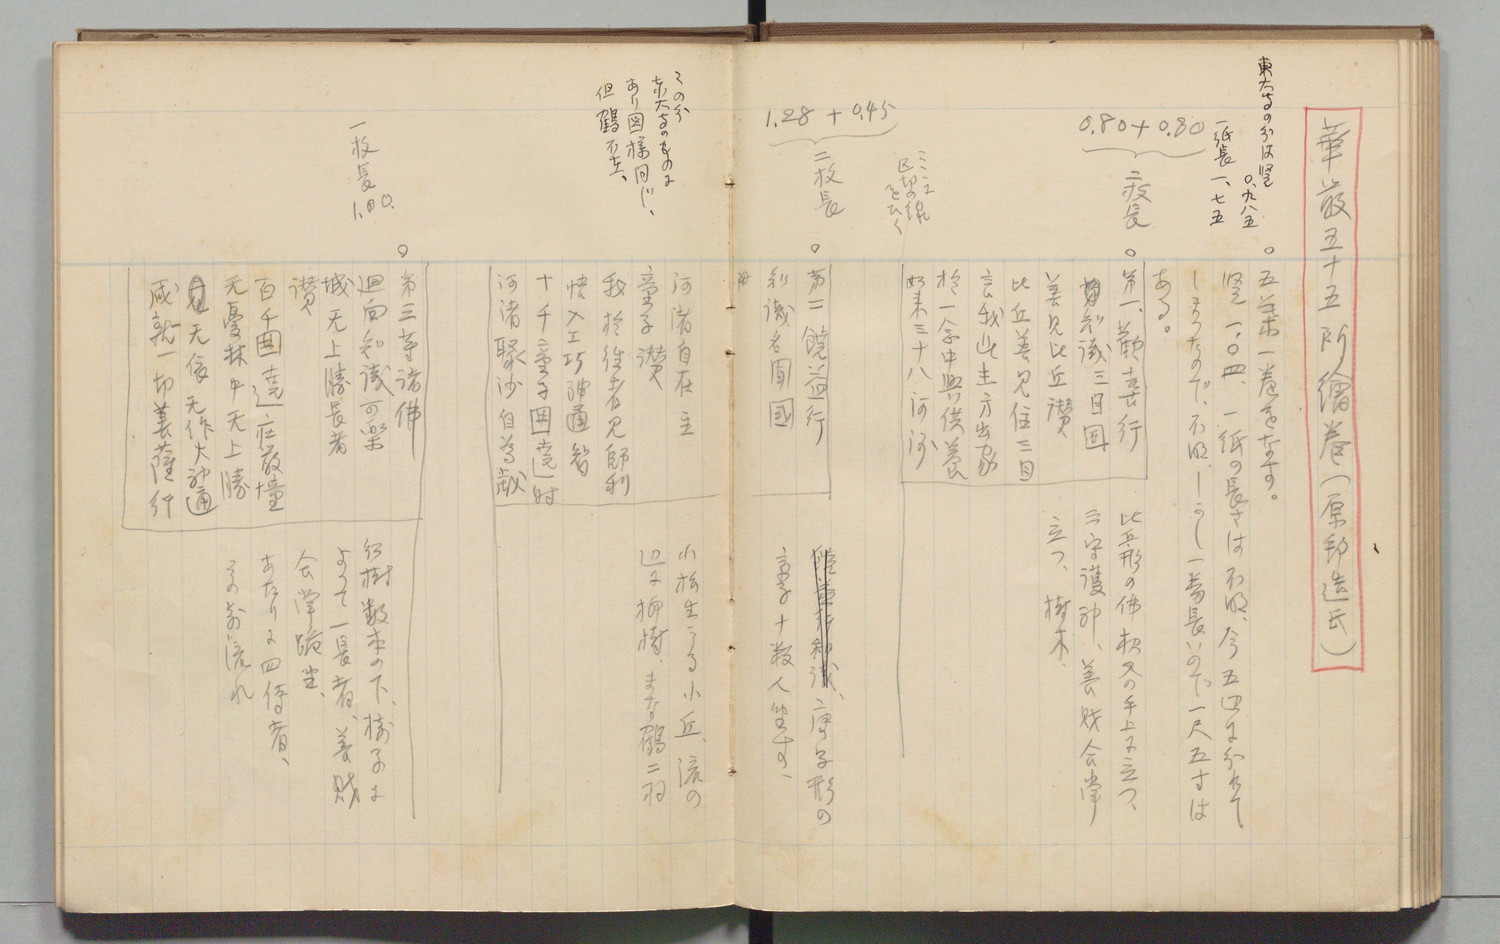 華嚴五十五所繪卷(原邦造氏)
東大寺の分は竪
〇.九八五
一紙長 一、七五
五葉一卷をなす。
竪 一.〇四、一紙の長さは不明、今五四に分れて
しまつたので、不明、しかし一番長いので一尺五寸は
ある。
0.80 + 0.80
二枚長
第一、歡喜行
知識三目國
善見比丘 讃
比丘善見住三目
言我此生方出家
於一念中興供養
如来三十八河沙
比丘形の佛 夜叉の手上に立つ、
三守護神、善財合掌
立つ、樹木、
ここに
区切の線
をひく
1.28 + 0.45
二枚長
第二 饒益行
知識名聞國
童子形の
童子十数人坐す、
河渚自在主
童子 讃
我於往者見師利
悟入工巧神通智
十千童子囲[遶]時
河渚聚沙自為戯
小松生うる小丘、流の
辺に柳樹、また鶴二羽
この分
東大寺のものに
あり図様同じ、
但鶴不在、
一枚長
1.00.
第三等諸佛
廻向知識可樂
城无上勝長者
讃
百千囲遶莊嚴幢
无憂林中无上勝
无依无作大神通
成就一切菩薩行
紅樹数本の下、椅子に
よつて一長者、善財
合掌跪坐、
あたりに四侍者、
その前流れ